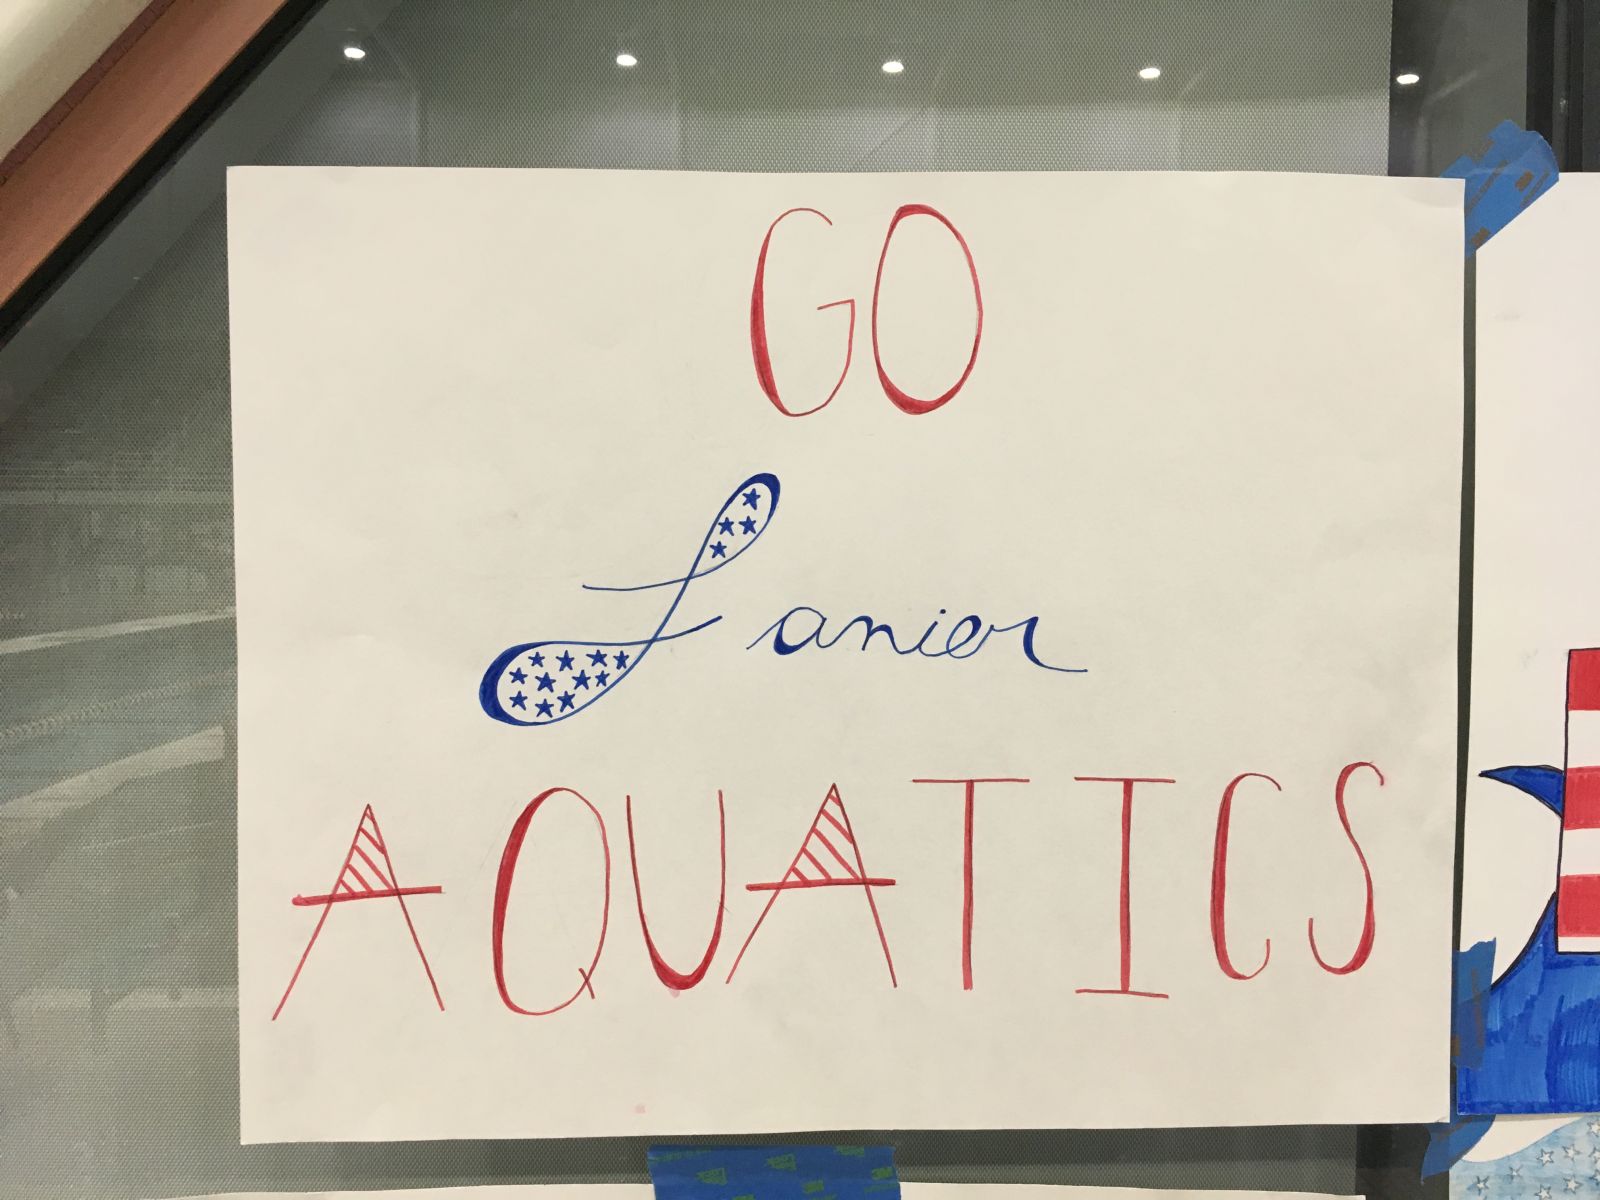 GO
Lanier
AQUATICS